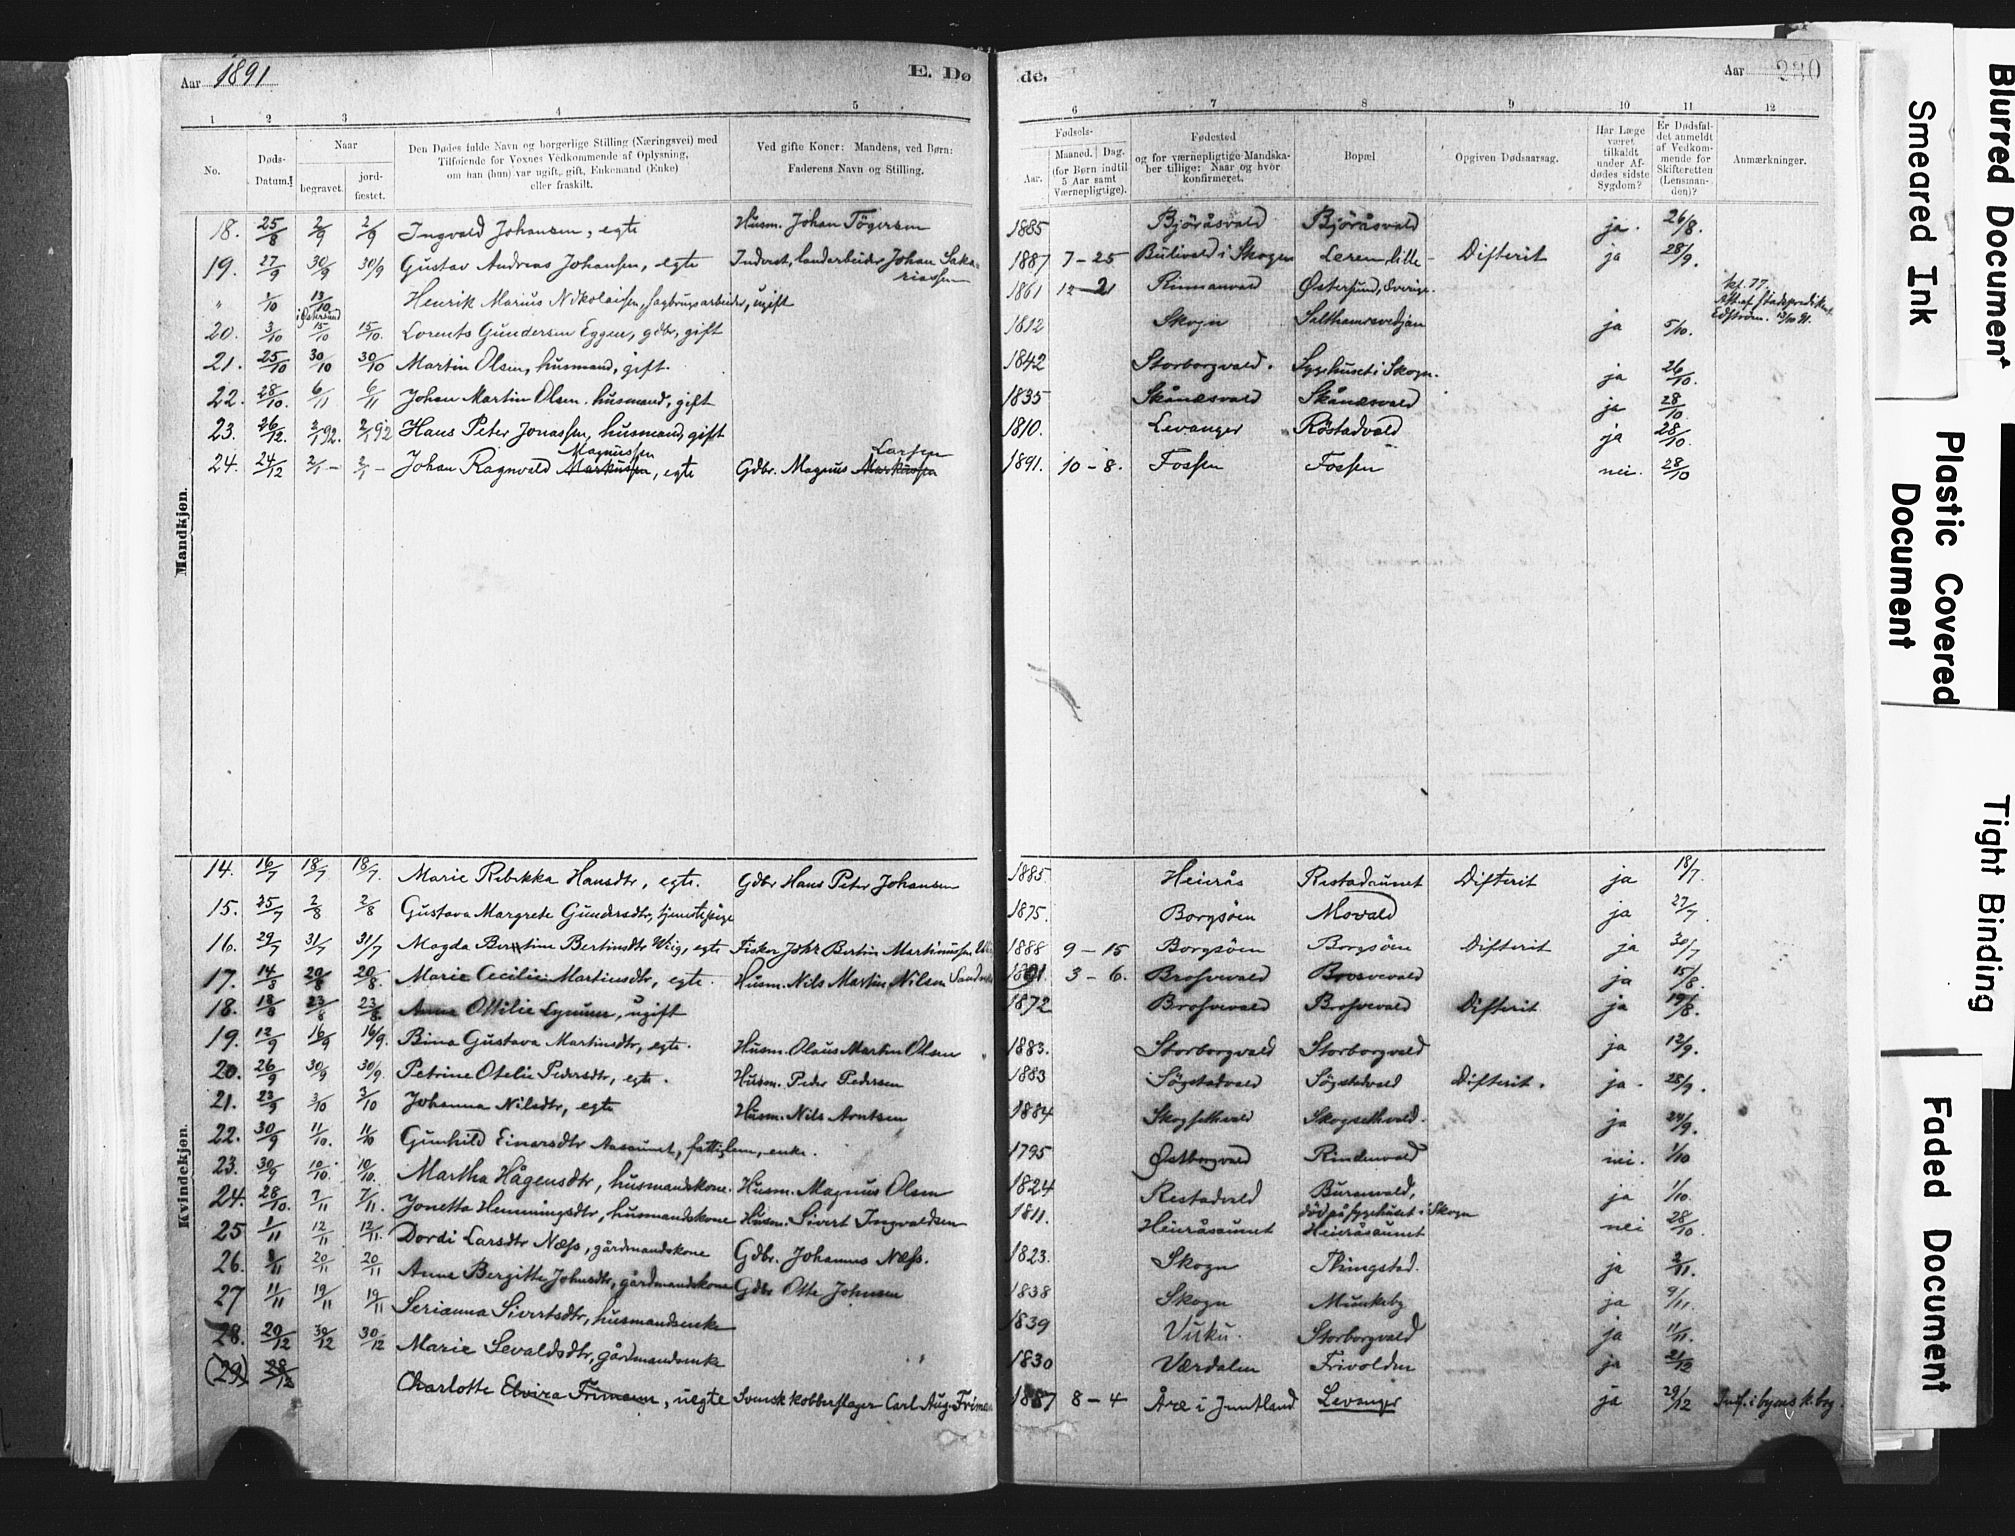 Aar 1891 E. Dø de. Aar 230
1 2 3 4 5 6 7 8 9 10 11 12
No. Døds-Datum. Naar begravet. jord-fæstet. Den Dødes fulde Navn og borgerlige Stilling (Næringsvei) med Tilføiende for Voxnes Vedkommende af Oplysning, om han (hun) var ugift, gift, Enkemand (Enke) eller fraskilt. Ved gifte Koner: Mandens, ved Børn: Faderens Navn og Stilling. Fødsels- Aar. Maaned. Dag. (for Børn indtil 5 Aar samt Værnepligtige). Fødested og for værnepligtige Mandskaber tillige: Naar og hvor konfirmeret. Bopæl Opgiven Dødsaarsag. Har Læge været tilkaldt under Afdødes sidste Sygdom? Er Dødsfaldet anmeldt af Vedkommende for Skifteretten (Lensmanden)? Anmærkninger.
Mandkjøn.
18. 25/8 2/9 2/9 Ingvald Johansen, egte Husm. Johan Tögersen 1885 Björåsvald Björåsvald ja. 26/8.
19. 27/9 30/9 30/9 Gustav Andreas Johansen, egte Inderst, landarbeider Johan Sakariassen 1887 7-25 Bulivald i Skogn Leren lille Difterit ja 28/9.
" 1/10 13/10 i Østersund Henrik Marius Nikolaisen, sagbrugsarbeider, ugift 1861 12-21 Rinnanvald Østersund, Sverige.
20. 3/10 15/10 15/10. Lorents Gundersen Eggen, gdbr, gift 1812 Skogn ja 5/10.
21. 25/10 30/10 30/10 Martin Olsen, husmand, gift. 1842 Storborgvald. Sygehuset i Skogn. ja 26/10.
22. 28/10. 6/11 6/11 Johan Martin Olsen. husmand, gift 1835 Skånesvald Skånesvald ja 28/10
23. 26/12. 2/1 92. 2/1 92 Hans Peter Jonassen, husmand, gift 1810. Levanger Röstadvald ja 28/10.
24. 24/12 2/1 - 2/1 - Johan Ragnvald Markussen Magnussen, egte Gdbr. Magnus Markussen Larsen 1891. 10-8. Fossen Fossen nei. 28/10
Kvindekjøn.
14. 16/7 18/7 18/7. Marie Rebekka Hansdtr, egte. Gdbr Hans Peter Johansen 1885. Heirås Restadaunet Difterit ja 18/7.
15. 25/7 2/8 2/8 Gustava Margrete Gundersdtr, tjenestepige 1875. Borgsöen Movald ja 27/7
16. 29/7 31/7 31/7 Magda Berntine Bertinsdtr Wiig, egte Fisker Johz Bertin Martinussen 1888 9-15 Borgsöen Borgsöen Difterit ja 30/7
17. 14/8 20/8 20/8. Marie Cecilie Martinsdtr, egte. Husm. Nils Martin Nilsen 1891. 3-6. Brosvevald Brosvevald ja 15/8.
18. 18/8 23/8 23/8. Anna Ottilie, ugift 1872 Brosvevald Brosvevald Difterit ja 19/8.
19. 12/9 16/9 16/9. Bina Gustava Martinsdtr, egte. Husm. Olaus Martin Olsen 1883. Storborgvald Storborgvald ja 12/9.
20. 26/9 30/9 30/9 Petrine Otelie Pedersdtr, egte. Husm. Peder Pedersen 1883 Sögstadvald Sögstadvald Difterit. ja. 28/9.
21. 23/9 3/10 3/10 Johanna Nilsdtr, egte Husm. Nils Arntsen 1884 Skogsethvald Skogsethvald. ja 24/9.
22. 30/9 11/10. 11/10 Gunhild Einersdtr Aasaunet, fattiglem, enke. 1795 Østborgvald Rindenvald nei. 1/10
23. 30/9 10/10. 10/10. Martha Hågensdtr, husmandskone. Husm. Magnus Olsen 1824 Restadvald Buranvald, ja 1/10.
24. 28/10. 7/11 7/11. Jonetta Hemmingsdtr, husmandskone Husm. Sivert Ingvaldsen 1811. Heieråsaunet död på sygehuset i Skogn Heieråsaunet nei 28/10.
25 1/11 12/11 12/11. Dordi Larsdtr Næss, gårdmandskone Gdbr. Johannes Næss. 1823. Skogn Thingstad. ja 2/11.
26. 8/11 20/11 20/11 Anne Bergitte Johnsdtr, gårdmandskone Gdbr Otto Johnsen 1838 Skogn Munkeby ja 9/11.
27 11/11 19/11 19/11 Serianna Sivertsdtr, husmandsenke 1839 Vuku. Storborgvald ja 11/11.
28. 20/12 30/12 30/12 Marie Sevaldsdtr, gårdmandsenke 1830 Værdalen Frivolden ja 21/12
(29) 28/12 Charlotte Elvira Frimann, uegte Svensk kobberslager Carl Aug. 1887 8-4 Åre i Jemtland Levanger ja 29/12 Indf. i byens k.bog.
Blurred Document
Smeared Ink
Plastic Covered Document
Tight Binding
Faded Document